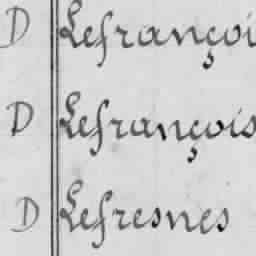 D Lefrançoi
D Lefrançois
D Lefresnes